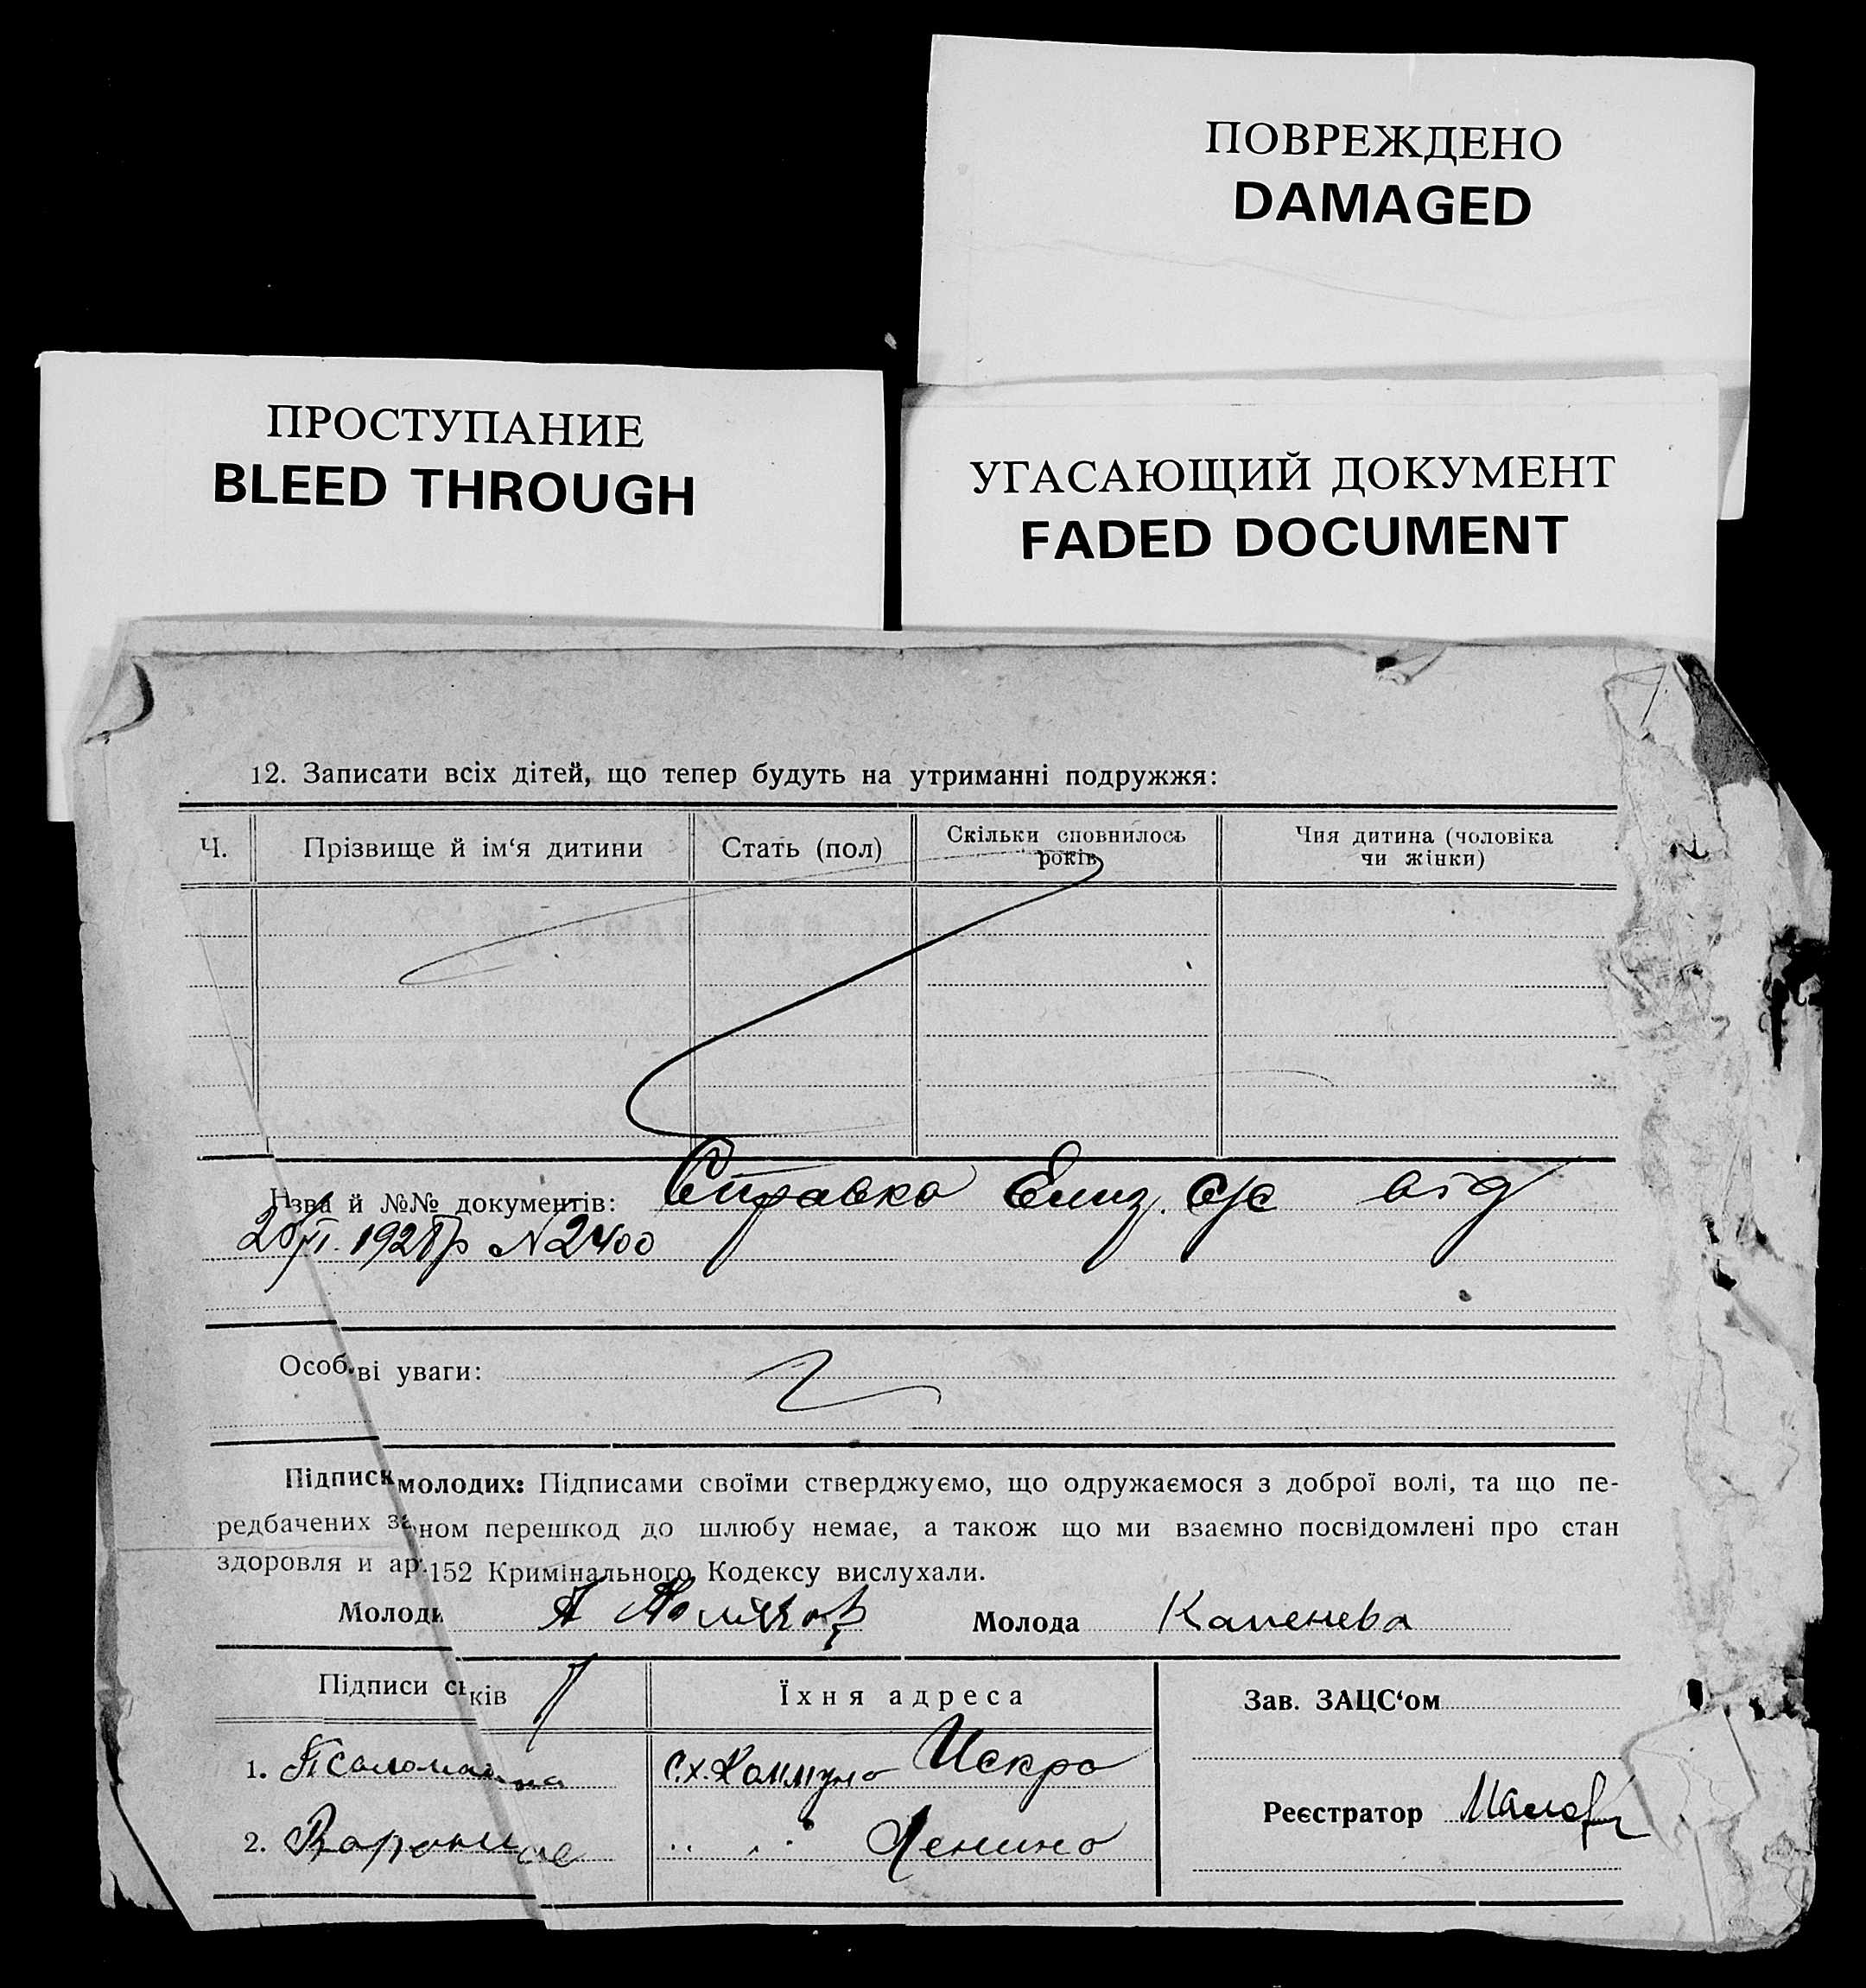 ПОВРЕЖДЕНО
DAMAGED
ПРОСТУПАНИЕ
BLEED THROUGH
УГАСАЮЩИЙ ДОКУМЕНТ
FADED DOCUMENT
12. Записати всіх дітей, що тепер будуть на утриманні подружжя:
Ч.
Прізвище й ім‘я дитини
Стать (пол)
Скільки сповнилось
років
Чия дитина (чоловіка
чи жінки)
Н зва й №№ документів: Справка Елиз. с/с від
20/VI. 1928р N2400
Особ ві уваги:
Підписи молодих: Підписами своїми стверджуємо, що одружаємося з доброї волі, та що пе-
редбачених за ном перешкод до шлюбу немає, а також що ми взаємно посвідомлені про стан
здоровля и ар. 152 Кримінального Кодексу вислухали.
Молоди Молода Каменева
Підписи св ків
Їхня адреса
Зав. ЗАЦС‘ом
1.
С.х. Коммуна Искра
2.
" " Ленина
Реєстратор